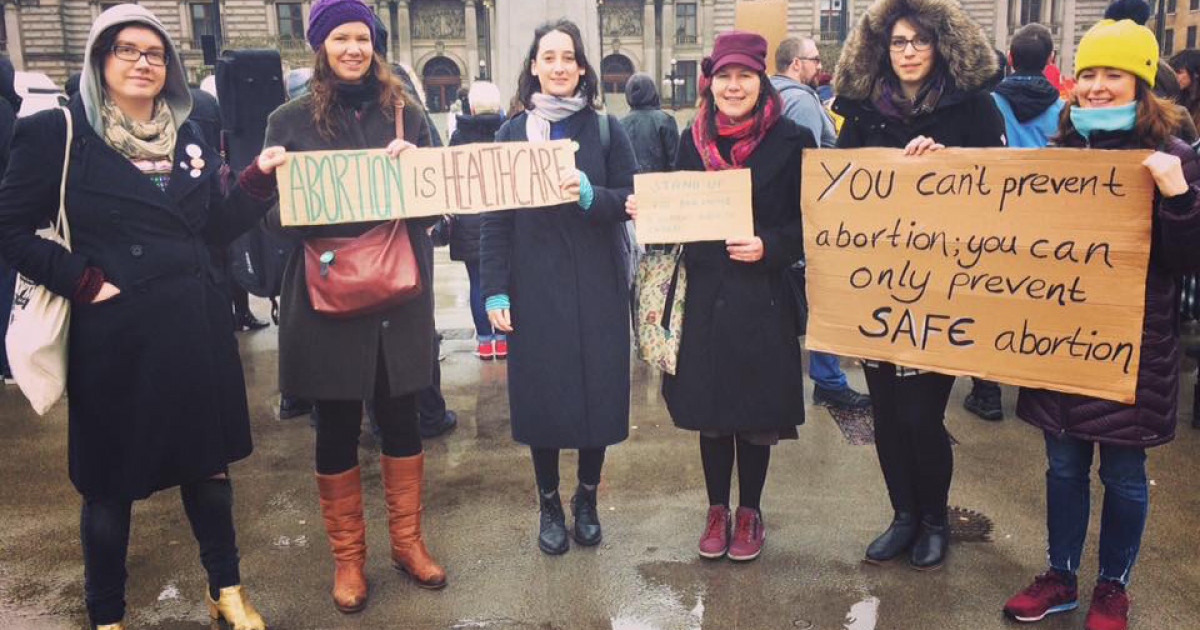 ABORTION IS HEALTHCARE
STAND UP
YOU can't prevent
abortion; you can
only prevent
SAFE abortion